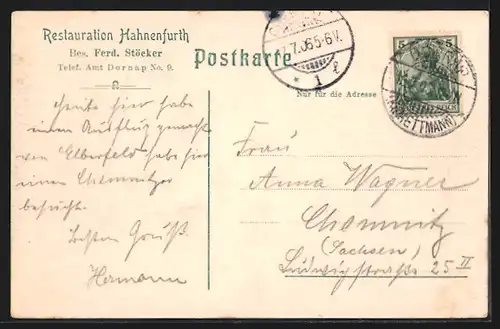 Restauration Hahnenfurth
Bes. Ferd. Stöcker
Telef. Amt Dornap No. 9.
Postkarte
Nur für die Adresse
7.06 5-6V.
* 1 f
5 5
(METTMANN)
heute hier habe
einen Ausflug gemacht
von Elberfeld habe hier
einen Chemnitzer
besucht.
besten Gruß.
Hermann
Frau
Anna Wagner
Chemnitz
(Sachsen)
Ludwigstraße 25 II